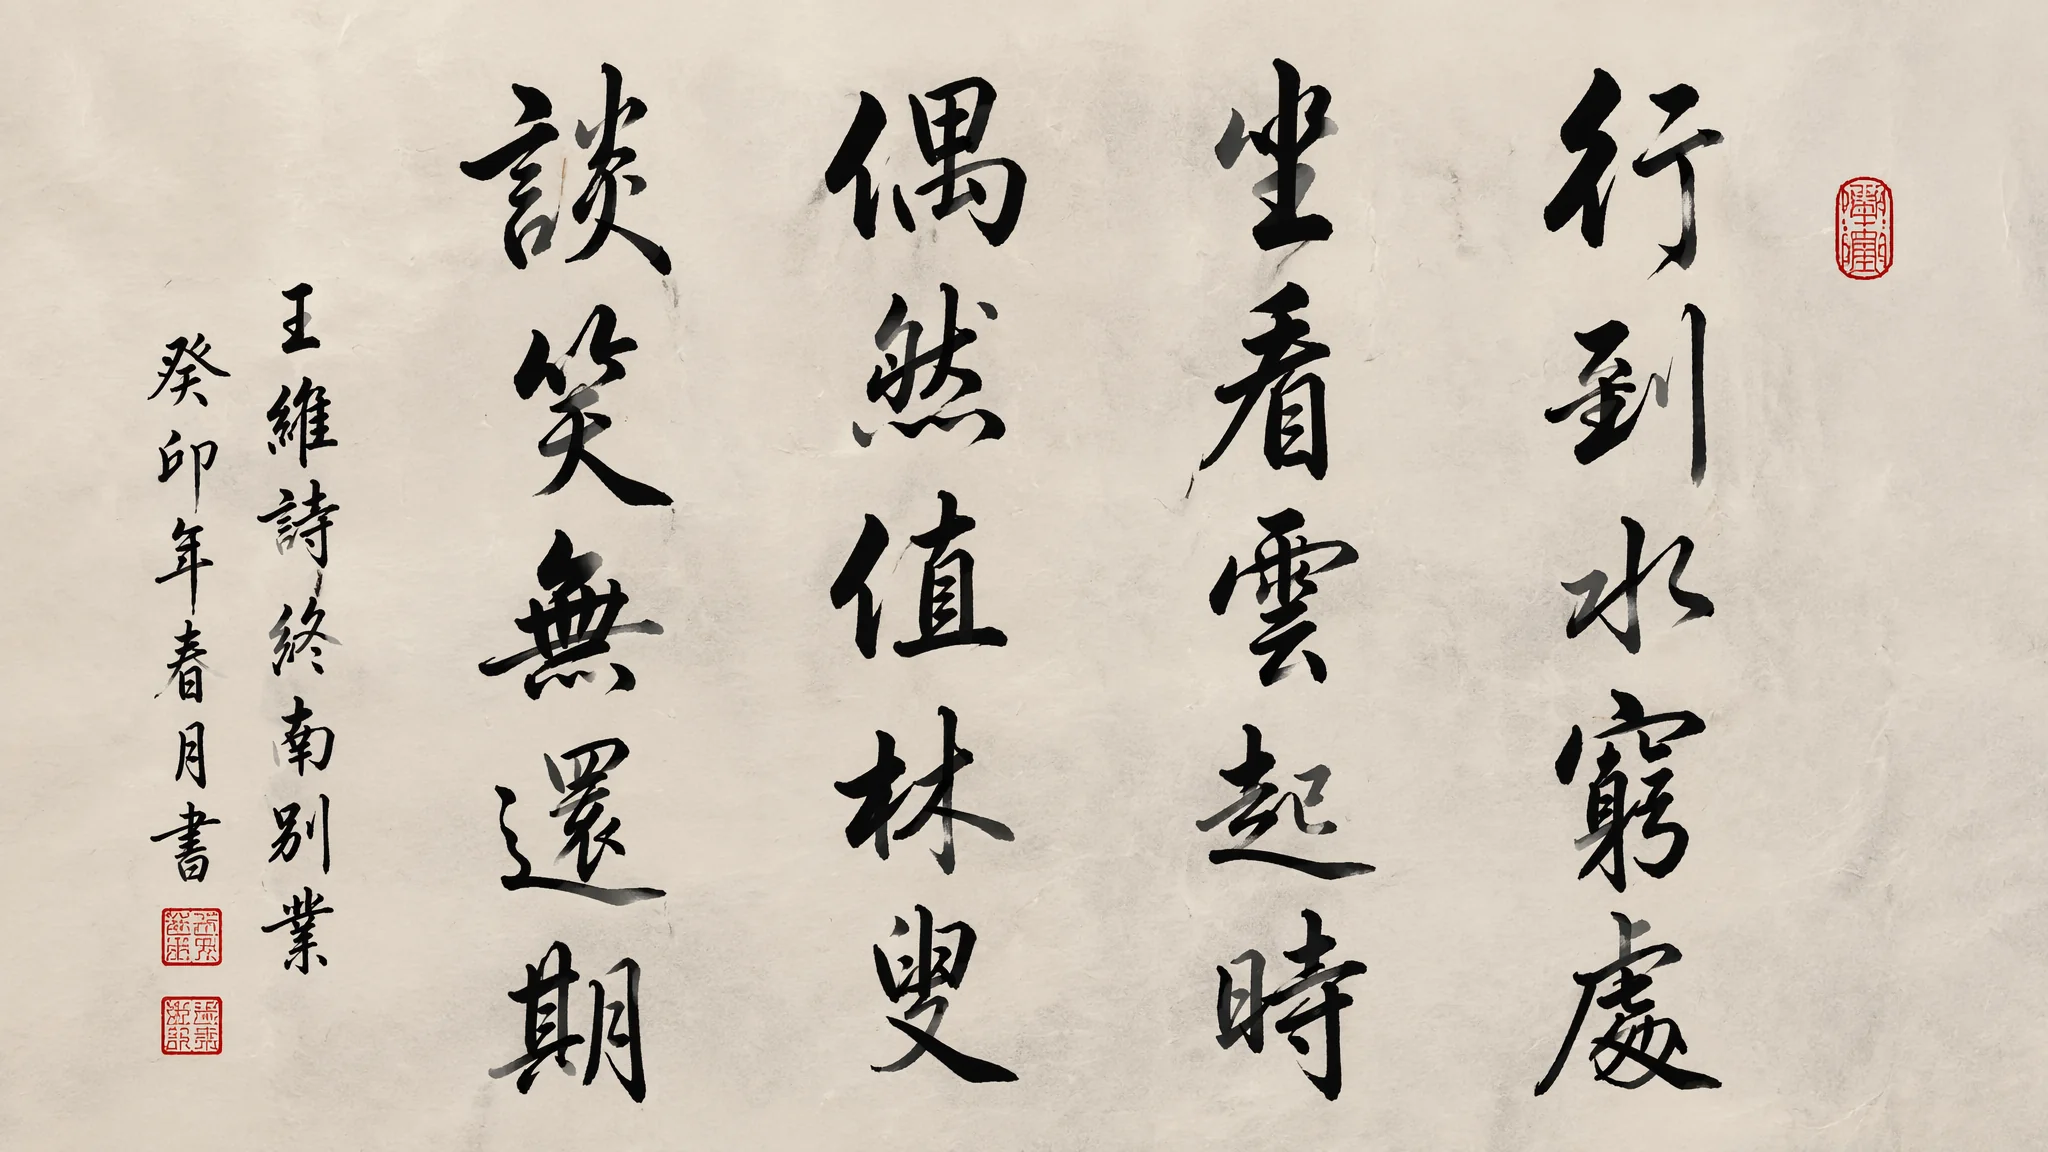 行到水窮處
坐看雲起時
偶然值林叟
談笑無還期
王維詩終南別業
癸卯年春月書